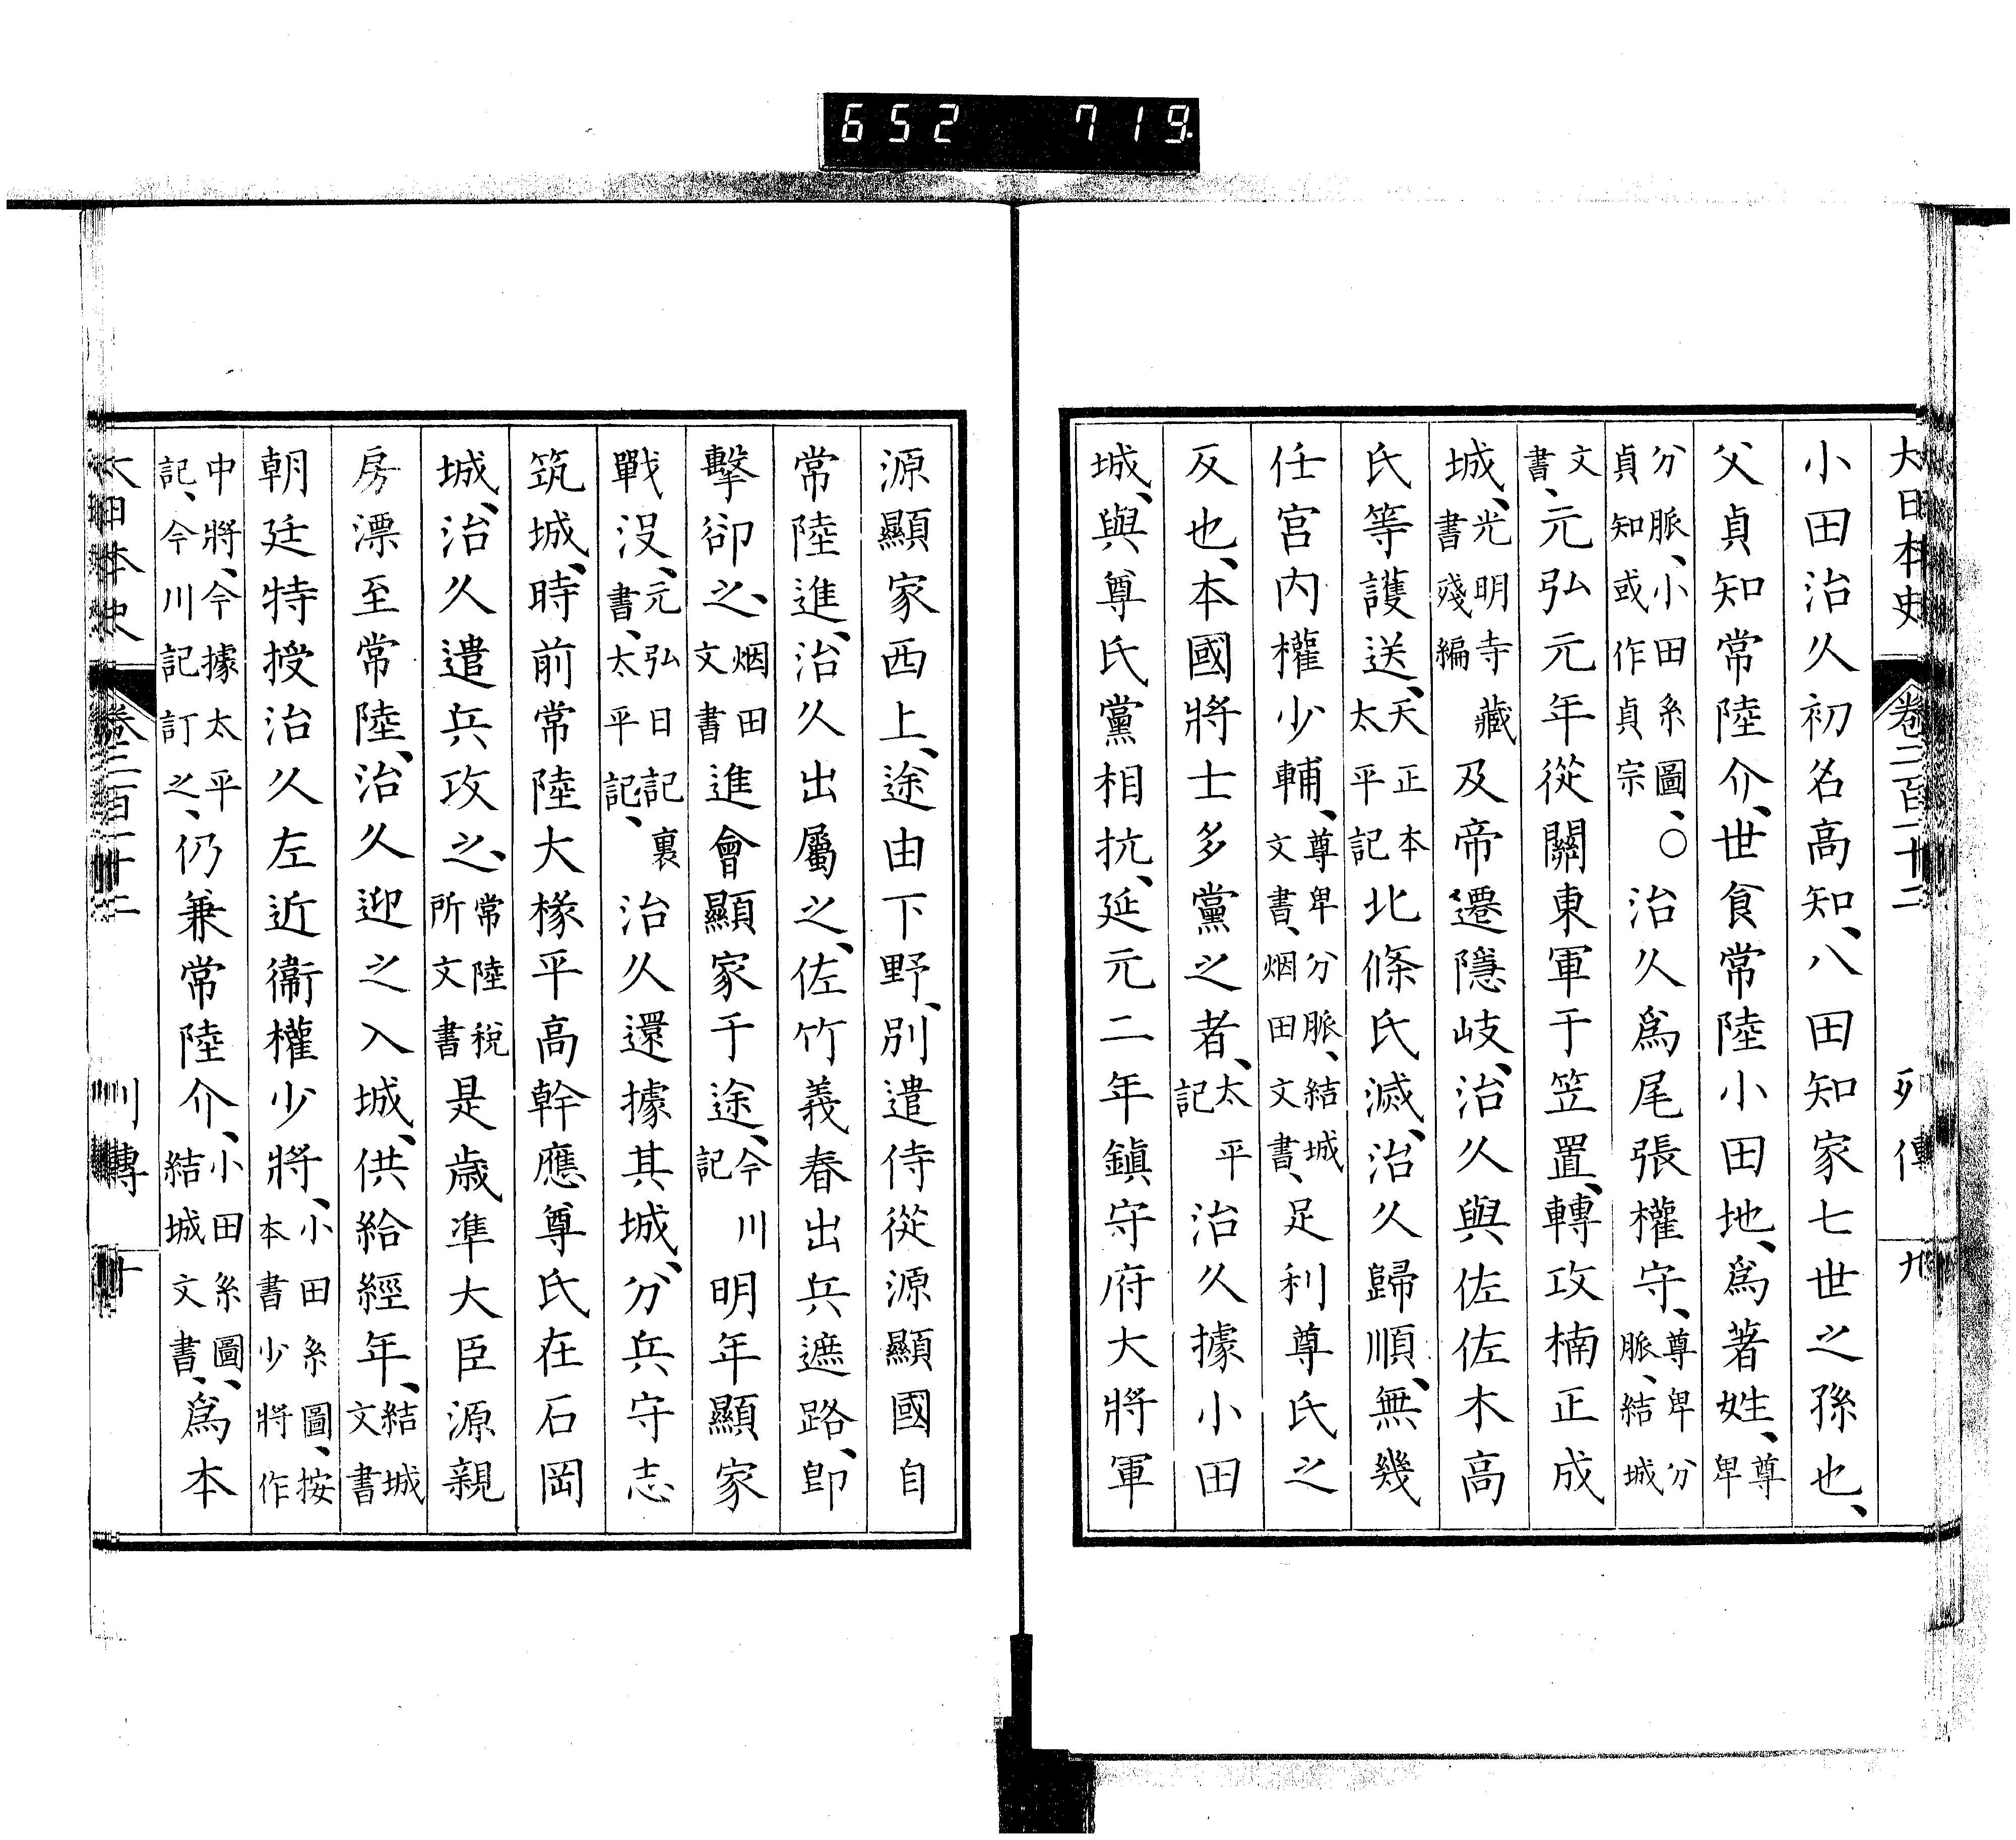 652 719.
大日本史 卷二百十二 列傳 九
小田治久初名高知、八田知家七世之孫也、
父貞知常陸介、世食常陸小田地、爲著姓、尊卑
分脈、小田系圖、○貞知或作貞宗 治久爲尾張權守、尊卑分脈、結城
文書、元弘元年從關東軍于笠置、轉攻楠正成
城、光明寺藏書殘編 及帝遷隱岐、治久與佐佐木高
氏等護送、天正本太平記 北條氏滅、治久歸順、無幾
任宮內權少輔、尊卑分脈、結城文書、烟田文書、足利尊氏之
反也、本國將士多黨之者、太平記 治久據小田
城、與尊氏黨相抗、延元二年鎭守府大將軍
源顯家西上、途由下野、別遣侍從源顯國自
常陸進、治久出屬之、佐竹義春出兵遮路、卽
擊卻之、烟田文書 進會顯家于途、今川記 明年顯家
戰沒、元弘日記裏書、太平記、治久還據其城、分兵守志
筑城、時前常陸大掾平高幹應尊氏在石岡
城、治久遣兵攻之、常陸稅所文書 是歲準大臣源親
房漂至常陸、治久迎之入城、供給經年、結城文書
朝廷特授治久左近衞權少將、小田系圖、按本書少將作
中將、今據太平記、今川記訂之、仍兼常陸介、小田系圖、結城文書、爲本
大日本史 卷二百十二 列傳 十